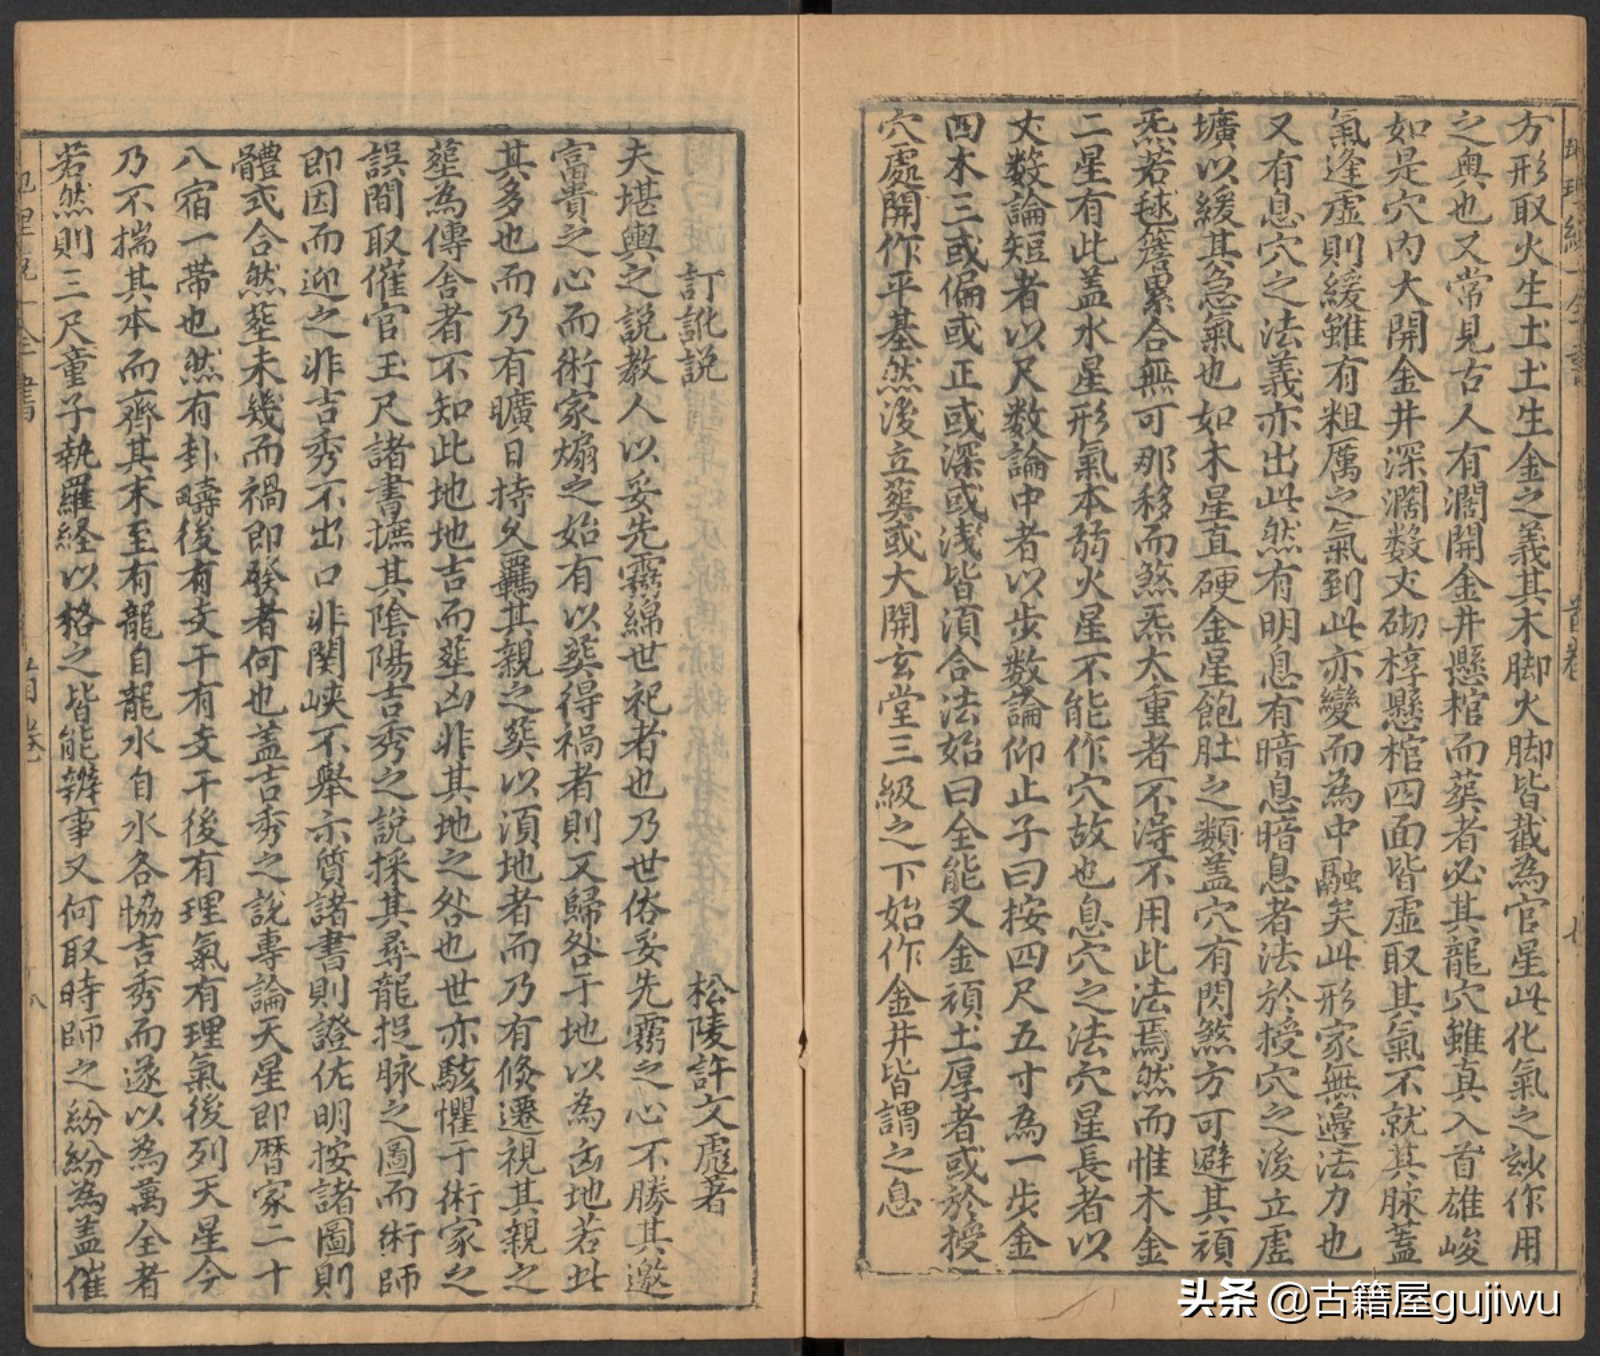 地理統一全書
首卷
七
方形取火生土土生金之義其木脚火脚皆截為官星此化氣之玅作用
之奧也又常見古人有濶開金井懸棺而葬者必其龍穴雖真入首雄峻
如是穴內大開金井深濶数丈砌椁懸棺四面皆虛取其氣不就其脉蓋
氣逢虛則緩雖有粗厲之氣到此亦變而為中融矣此形家無邊法力也
又有息穴之法義亦出此然有明息有暗息暗息者法於授穴之後立虛
壙以緩其急氣也如木星直硬金星飽肚之類盖穴有閃煞方可避其頑
炁若毬簷累合無可那移而煞炁太重者不淂不用此法焉然而惟木金
二星有此盖水星形氣本弱火星不能作穴故也息穴之法穴星長者以
丈数論短者以尺数論中者以步数論仰止子曰按四尺五寸為一步金
四木三或偏或正或深或浅皆湏合法始曰全能又金頑土厚者或於授
穴處開作平基然後立葬或大開玄堂三級之下始作金井皆謂之息
訂訛說
松陵許文彪著
夫堪輿之說教人以妥先靈綿世祀者也乃世俗妥先靈之心不勝其邀
富貴之心而術家煽之始有以葬得禍者則又歸咎于地以為凶地若此
其多也而乃有曠日持久羈其親之葬以湏地者而乃有倐遷視其親之
塟為傳舍者不知此地地吉而塟凶非其地之咎也世亦駭懼于術家之
誤間取催官玉尺諸書摭其陰陽吉秀之說採其尋龍捉脉之圖而術師
即因而迎之非吉秀不出口非関峡不舉示質諸書則證佐明按諸圖則
體式合然塟未幾而禍即發者何也盖吉秀之說專論天星即曆家二十
八宿一帶也然有卦疇後有支干有支干後有理氣有理氣後列天星今
乃不揣其本而齊其末至有龍自龍水自水各協吉秀而遂以為萬全者
若然則三尺童子執羅経以格之皆能辦事又何取時師之紛紛為盖催
首卷
八
头条 @古籍屋gujiwu